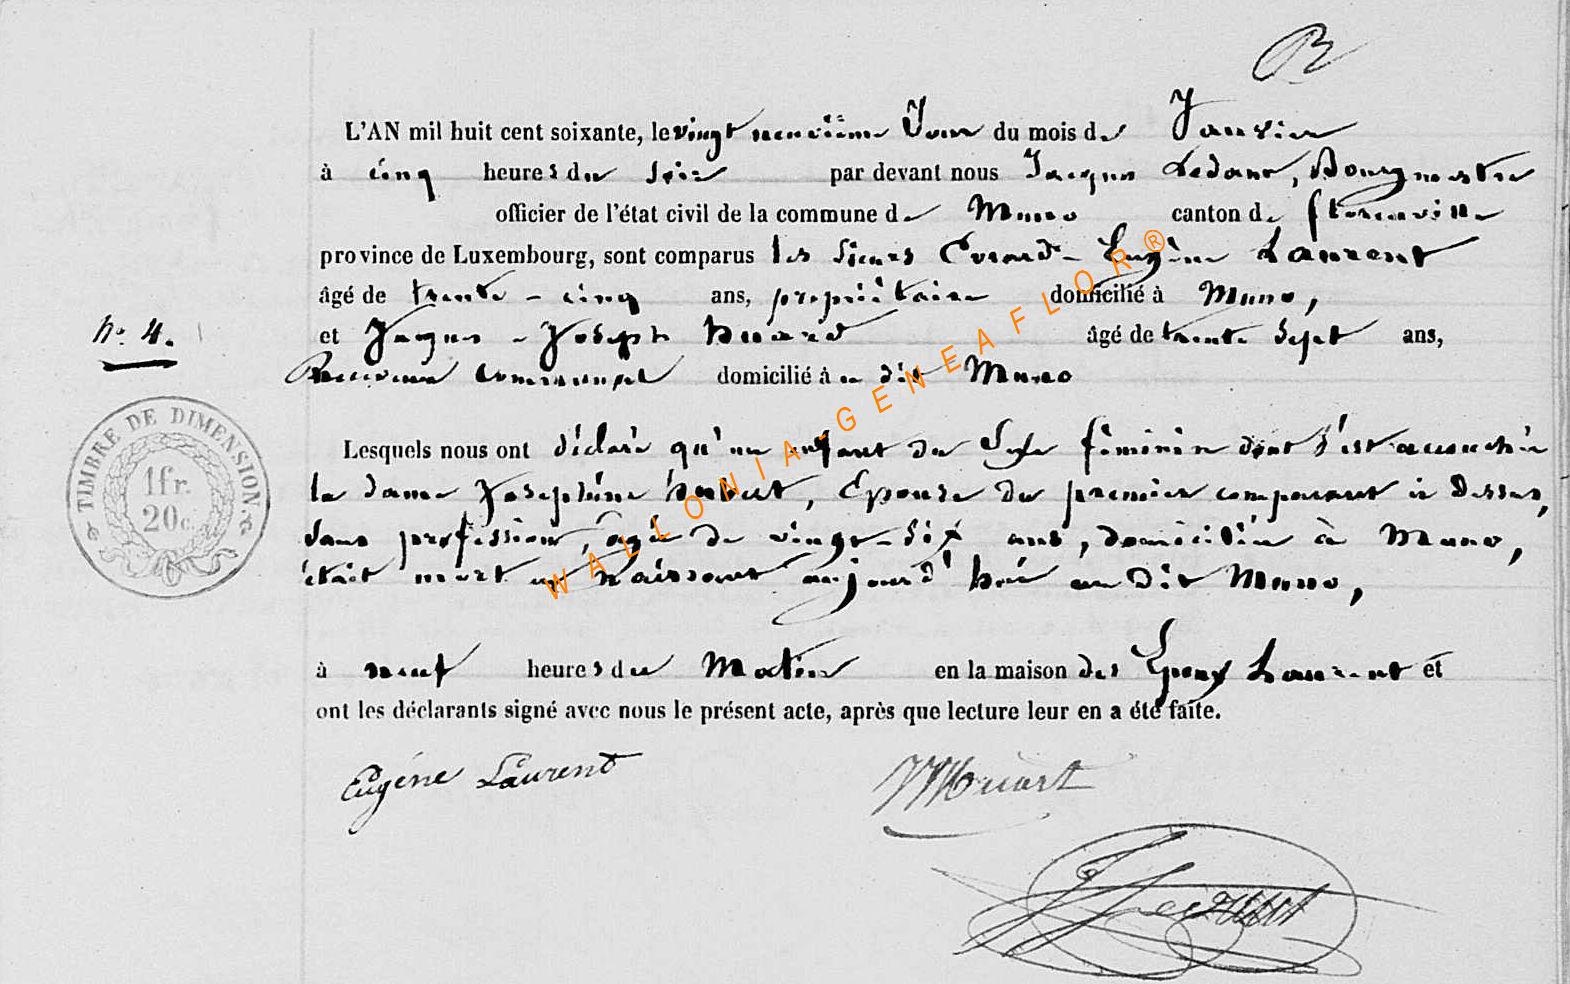 B
L'AN mil huit cent soixante, le vingt neuvième Jour du mois de Janvier
à cinq heures du Soir par devant nous Jacques Ledant, Bourgmestre
officier de l'état civil de la commune de Muno canton de florenville
province de Luxembourg, sont comparus les Sieurs Evrard - Eugène Laurent
âgé de trente - cinq ans, propriètaire domicilié à Muno,
N° 4.
et Jacques - Joseph Huard âgé de trente Sept ans,
Receveur Communal domicilié à u dit Muno
Lesquels nous ont déclaré qu'un enfant du Sexe féminin dont s'est accouchée
la dame Joséphine Hubert, Epouse du premier comparant ci dessus,
Sans profession, agée de vingt-six ans, domiciliée à Muno,
était mort en Naissant aujourd'hui au dit Muno,
à neuf heures du Matin en la maison des Epoux Laurent et
ont les déclarants signé avec nous le présent acte, après que lecture leur en a été faite.
TIMBRE DE DIMENSION.
1fr.
20c.
Eugéne Laurent
JJHuart
JLedant
WALLONIA-GENEAFLOR®